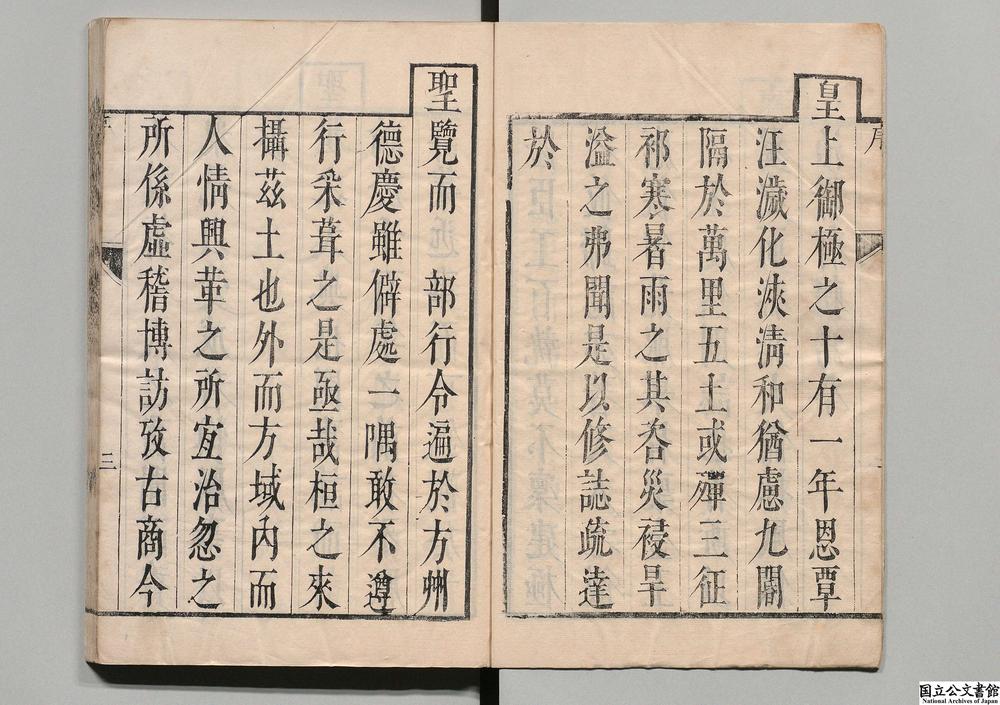 序
皇上御極之十有一年恩覃
汪濊化浹清和猶慮九閽
隔於萬里五土或殫三征
祁寒暑雨之其咨災祲旱
溢之弗聞是以修誌疏達
於
聖覽而 部行令遍於方州
德慶雖僻處一隅敢不遵
行采葺之是亟哉桓之來
攝茲土也外而方域內而
人情興革之所宜治忽之
所係虛稽博訪攷古商今
三
国立公文書館
National Archives of Japan